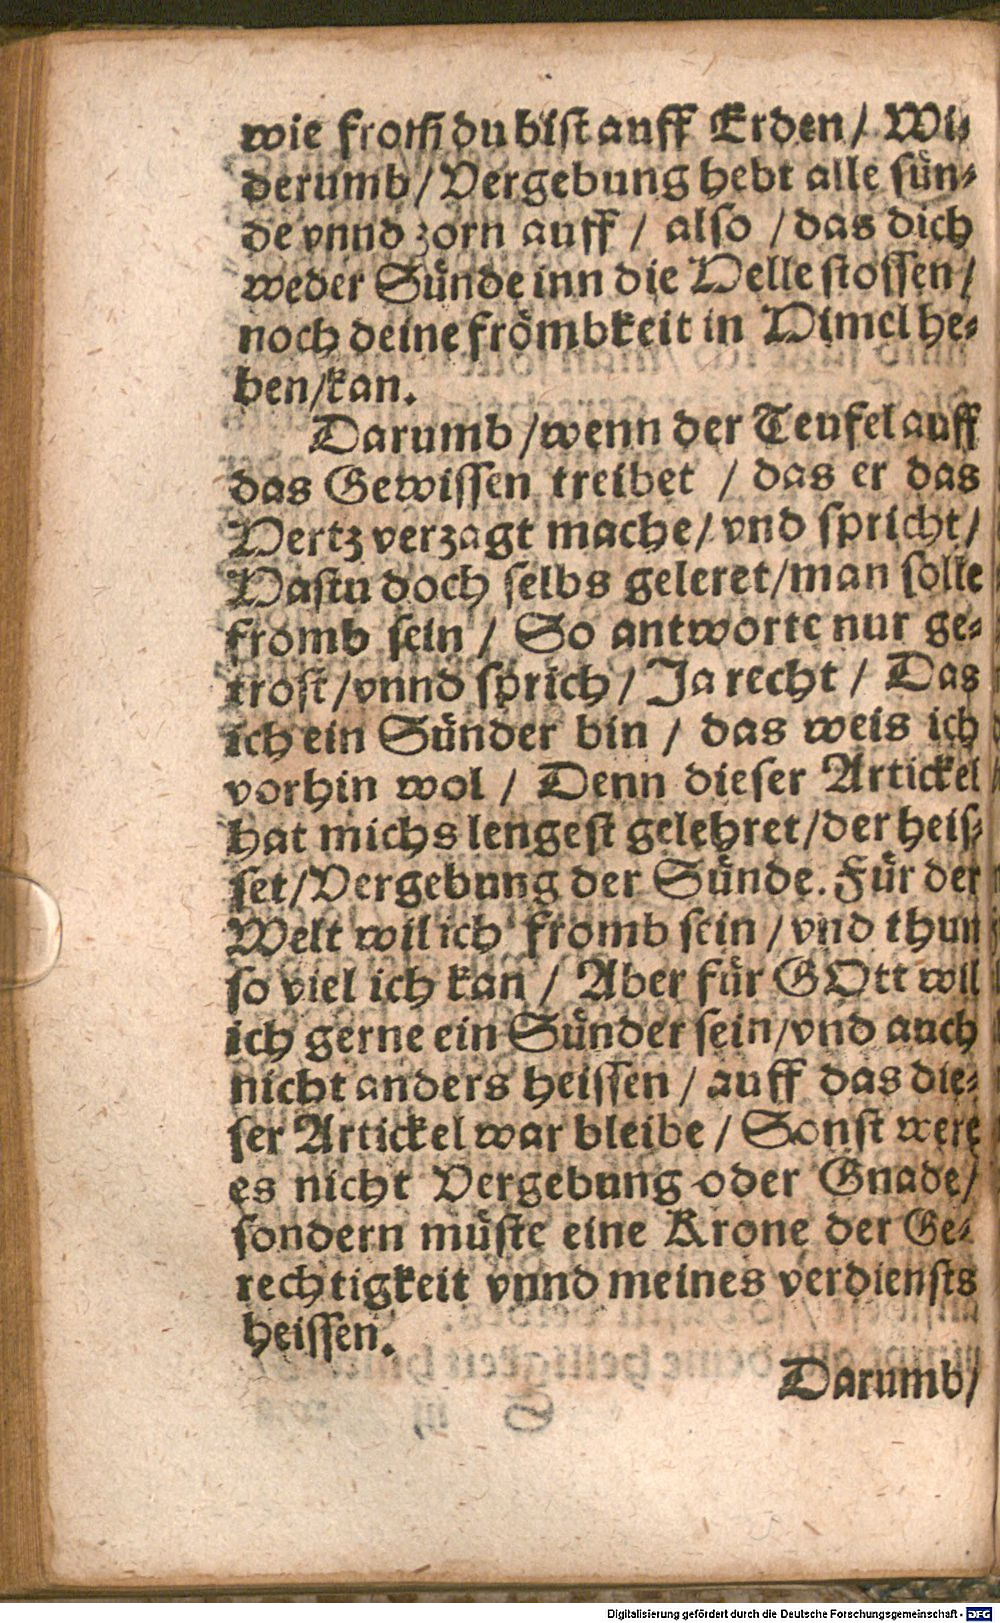 wie from̃ du bist auff Erden / Wi⸗
derumb / Vergebung hebt alle suͤn⸗
de vnnd zorn auff / also / das dich
weder Suͤnde inn die Helle stossen /
noch deine froͤmbkeit in Himel he⸗
ben / kan.
Darumb / wenn der Teufel auff
das Gewissen treibet / das er das
Hertz verzagt mache / vnd spricht /
Hastu doch selbs geleret / man solle
fromb sein / So antworte nur ge⸗
trost / vnnd sprich / Ja recht / Das
ich ein Suͤnder bin / das weis ich
vorhin wol / Denn dieser Artickel
hat michs lengest gelehret / der heis⸗
set / Vergebung der Suͤnde. Fuͤr der
Welt wil ich fromb sein / vnd thun
so viel ich kan / Aber fuͤr GOtt wil
ich gerne ein Suͤnder sein / vnd auch
nicht anders heissen / auff das die⸗
ser Artickel war bleibe / Sonst were
es nicht Vergebung oder Gnade /
sondern muͤste eine Krone der Ge⸗
rechtigkeit vnnd meines verdiensts
heissen.
Darumb /
Digitalisierung gefördert durch die Deutsche Forschungsgemeinschaft - DFG